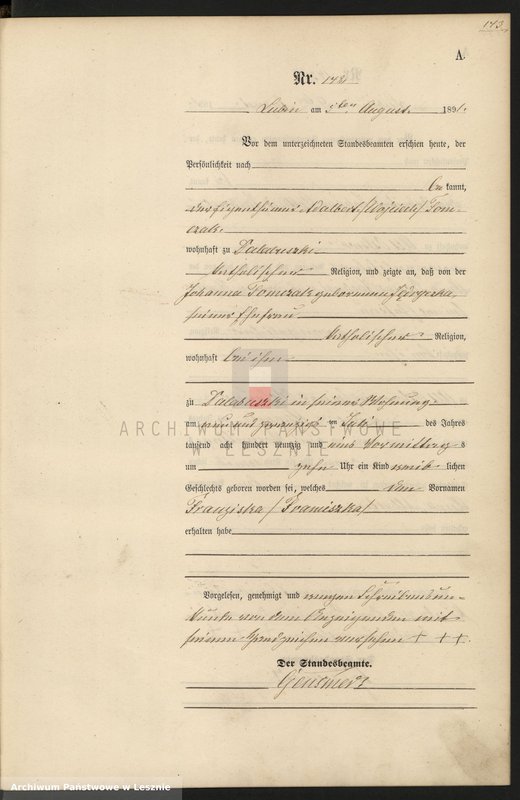 143
A.
Nr. 142
Lubin am 5ten August 1891.
Vor dem unterzeichneten Standesbeamten erschien heute, der
Persönlichkeit nach
bekannt,
der Eigenthümer Adalbert /Wojciech/ Tom-
czak
wohnhaft zu
katholischer Religion, und zeigte an, daß von der
Johanna Tomczak geborenen
seiner Ehefrau
katholischer Religion,
wohnhaft bei ihm
zu in seiner Wohnung
am neun und zwanzig ten Juli des Jahres
tausend acht hundert neunzig und eins Vormittag s
um zehn Uhr ein Kind weib lichen
Geschlechts geboren worden sei, welches den Vornamen
Franziska /Franciszka/
erhalten habe
Vorgelesen, genehmigt und wegen Schreibensun-
kunde von dem Anzeigenden mit
seinem Handzeichen versehen + + +.
Der Standesbeamte.
ARCHIWUM PAŃSTWOWE
W LESZNIE
Archiwum Państwowe w Lesznie